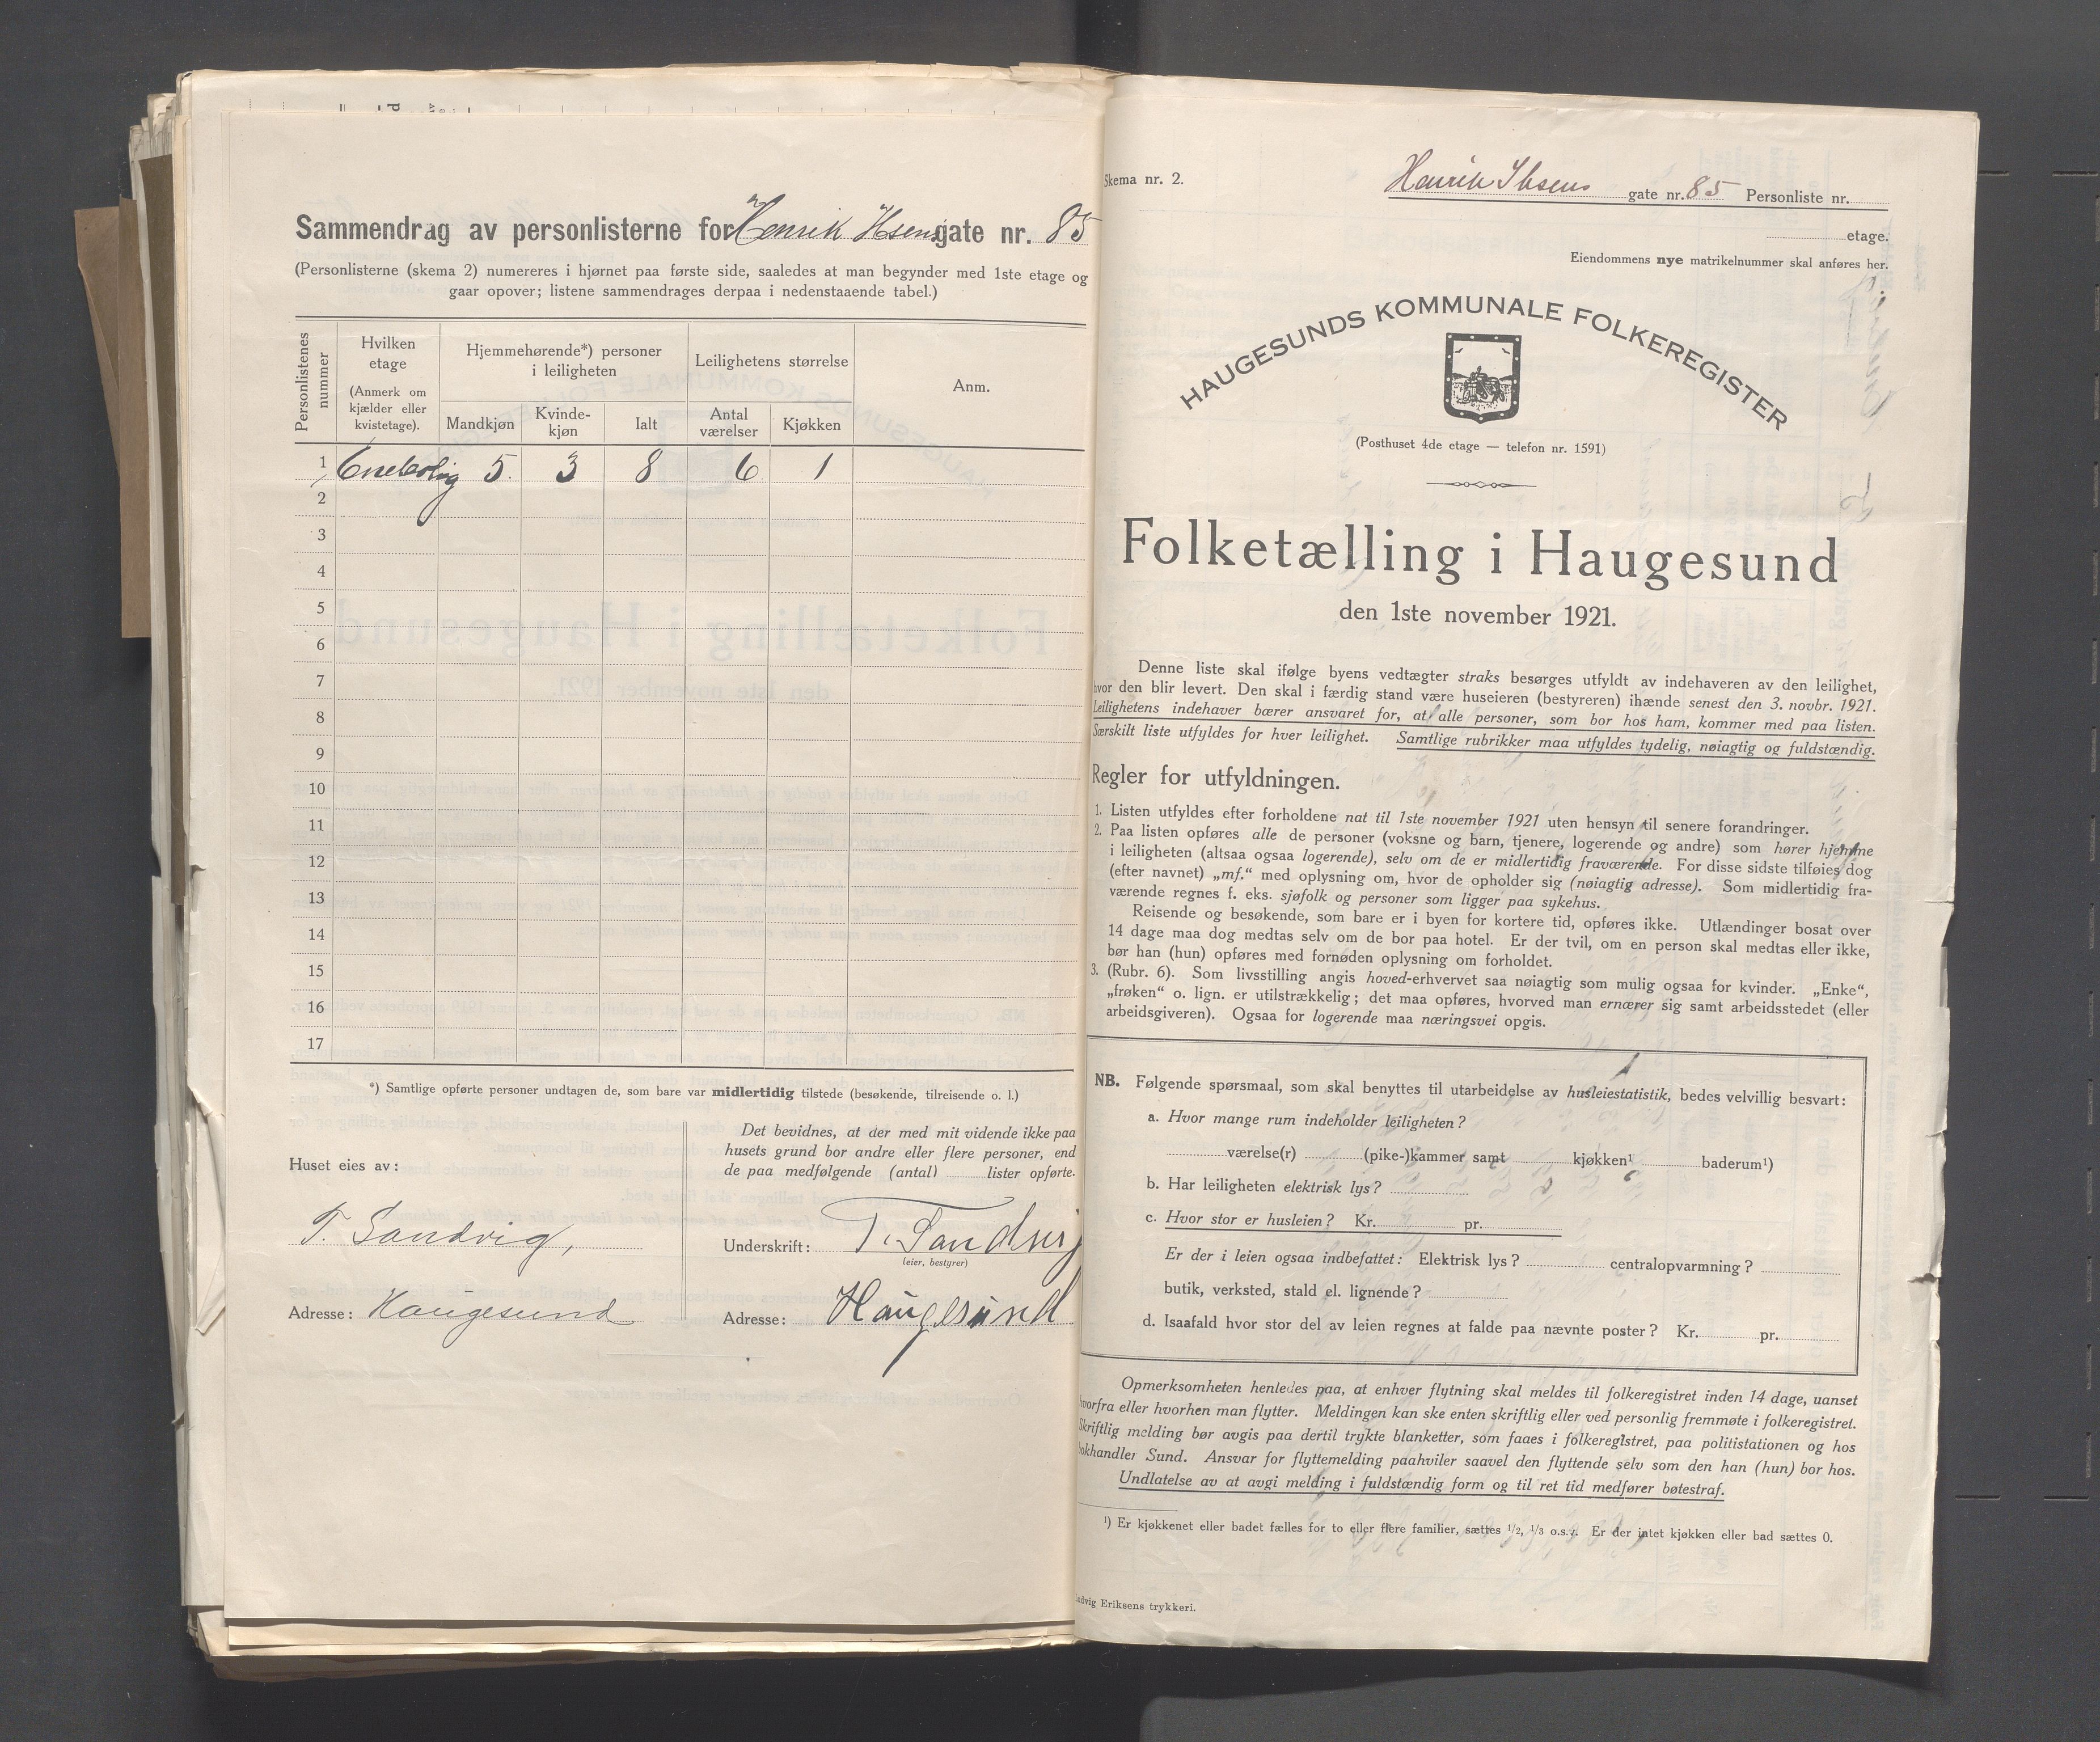 Sammendrag av personlisterne for Henrik Ibsens gate nr. 85
(Personlisterne (skema 2) numereres i hjørnet paa første side, saaledes at man begynder med 1ste etage og
gaar opover; listene sammendrages derpaa i nedenstaaende tabel.)
Personlistenes nummer
Hvilken etage
(Anmerk om kjælder eller kvistetage).
Hjemmehørende*) personer i leiligheten
Leilighetens størrelse
Anm.
Mandkjøn
Kvinde-kjøn
Ialt
Antal værelser
Kjøkken
1 Enebolig 5. 3 8 6 1
2
3
4
5
6
7
8
9
10
11
12
13
14
15
16
17
*) Samtlige opførte personer undtagen de, som bare var midlertidig tilstede (besøkende, tilreisende o. l.)
Huset eies av:
T. Sandvig,
Adresse: Haugesund
Det bevidnes, at der med mit vidende ikke paa
husets grund bor andre eller flere personer, end
de paa medfølgende (antal) lister opførte.
Underskrift: T. Sandvig
(eier, bestyrer)
Adresse: Haugesund
Skema nr. 2.
Henrik Ibsens gate nr. 85 Personliste nr.
etage.
Eiendommens nye matrikelnummer skal anføres her.
HAUGESUNDS KOMMUNALE FOLKEREGISTER
(Posthuset 4de etage — telefon nr. 1591)
Folketælling i Haugesund
den 1ste november 1921.
Denne liste skal ifølge byens vedtægter straks besørges utfyldt av indehaveren av den leilighet,
hvor den blir levert. Den skal i færdig stand være huseieren (bestyreren) ihænde senest den 3. novbr. 1921.
Leilighetens indehaver bærer ansvaret for, at alle personer, som bor hos ham, kommer med paa listen.
Særskilt liste utfyldes for hver leilighet. Samtlige rubrikker maa utfyldes tydelig, nøiagtig og fuldstændig.
Regler for utfyldningen.
1. Listen utfyldes efter forholdene nat til 1ste november 1921 uten hensyn til senere forandringer.
2. Paa listen opføres alle de personer (voksne og barn, tjenere, logerende og andre) som hører hjemme
i leiligheten (altsaa ogsaa logerende), selv om de er midlertidig fraværende. For disse sidste tilføies dog
(efter navnet) „mf.“ med oplysning om, hvor de opholder sig (nøiagtig adresse). Som midlertidig fra-
værende regnes f. eks. sjøfolk og personer som ligger paa sykehus.
Reisende og besøkende, som bare er i byen for kortere tid, opføres ikke. Utlændinger bosat over
14 dage maa dog medtas selv om de bor paa hotel. Er der tvil, om en person skal medtas eller ikke,
bør han (hun) opføres med fornøden oplysning om forholdet.
3. (Rubr. 6). Som livsstilling angis hoved-erhvervet saa nøiagtig som mulig ogsaa for kvinder. „Enke“,
„frøken“ o. lign. er utilstrækkelig; det maa opføres, hvorved man ernærer sig samt arbeidsstedet (eller
arbeidsgiveren). Ogsaa for logerende maa næringsvei opgis.
NB. Følgende spørsmaal, som skal benyttes til utarbeidelse av husleiestatistik, bedes velvillig besvart:
a. Hvor mange rum indeholder leiligheten?
værelse(r) (pike-)kammer samt kjøkken¹ baderum¹)
b. Har leiligheten elektrisk lys?
c. Hvor stor er husleien? Kr. pr.
Er der i leien ogsaa indbefattet: Elektrisk lys? centralopvarmning?
butik, verksted, stald el. lignende?
d. Isaafald hvor stor del av leien regnes at falde paa nævnte poster? Kr. pr.
Opmerksomheten henledes paa, at enhver flytning skal meldes til folkeregistret inden 14 dage, uanset
hvorfra eller hvorhen man flytter. Meldingen kan ske enten skriftlig eller ved personlig fremmøte i folkeregistret.
Skriftlig melding bør avgis paa dertil trykte blanketter, som faaes i folkeregistret, paa politistationen og hos
bokhandler Sund. Ansvar for flyttemelding paahviler saavel den flyttende selv som den han (hun) bor hos.
Undlatelse av at avgi melding i fuldstændig form og til ret tid medfører bøtestraf.
¹) Er kjøkkenet eller badet fælles for to eller flere familier, sættes 1/2, 1/3 o.s.v. Er der intet kjøkken eller bad sættes 0.
Ludvig Eriksens trykkeri.